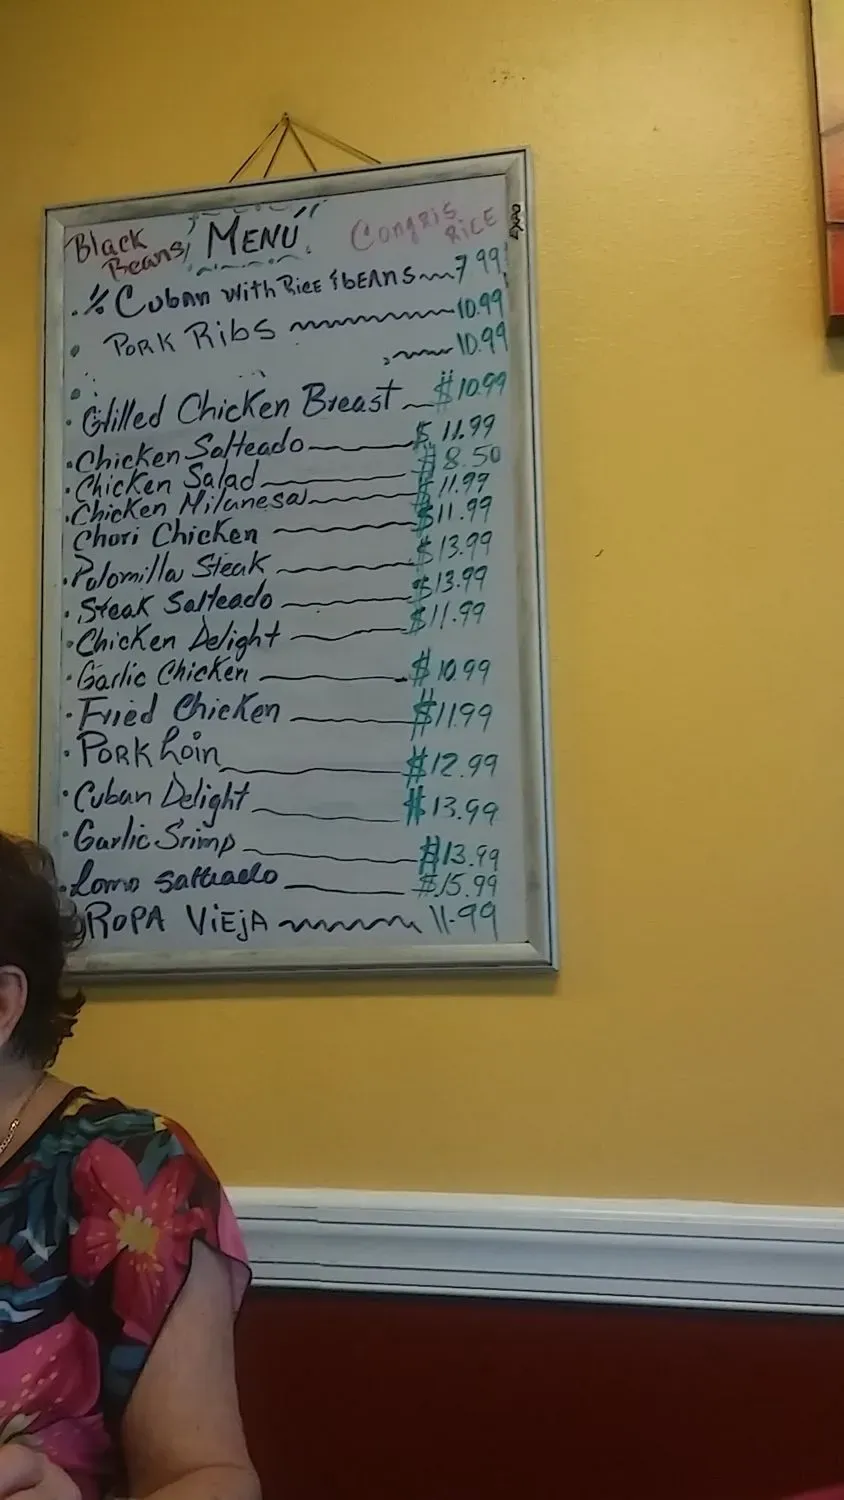 Black Beans, MENÚ Congris RiCE
½ Cuban with Rice & bEANS 7.99
PORK RibS 10.99
10.99
Glilled Chicken Breast $10.99
Chicken Salteado $ 11.99
Chicken Salad $8.50
Chicken Milanesa $11.99
Chori Chicken $11.99
Palomilla Steak $13.99
Steak Salteado $13.99
Chicken Delight $11.99
Garlic Chicken $10.99
Fried Chicken $11.99
PORK Loin $12.99
Cuban Delight $13.99
Garlic Srimp $13.99
Lomo Salteado $15.99
ROPA ViEjA 11.99